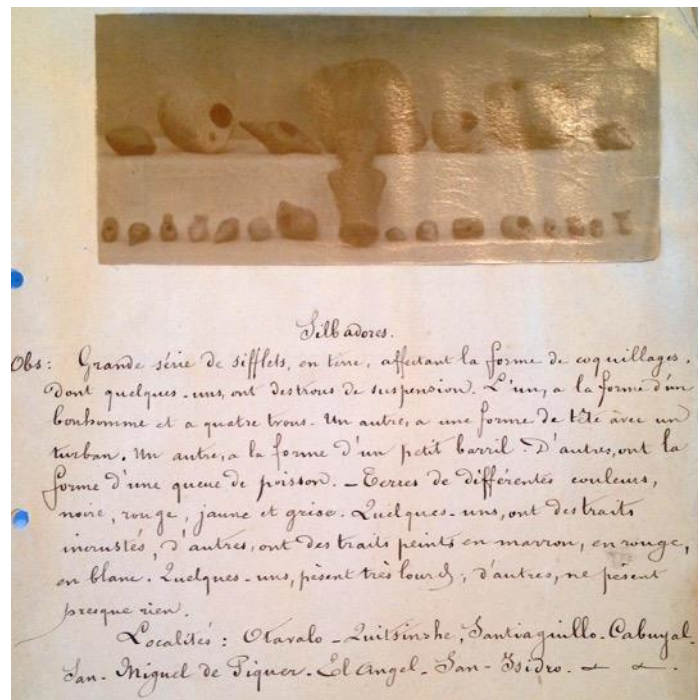 Silbadores.
Obs: Grande série de sifflets, en terre, affectant la forme de coquillages.
dont quelques-uns, ont des trous de suspension. L'un, a la forme d'un
bonhomme et a quatre trous. Un autre, a une forme de tête avec un
turban. Un autre, a la forme d'un petit barril. D'autres, ont la
forme d'une queue de poisson. - Terres de différentes couleurs,
noire, rouge, jaune et grise. Quelques-uns, ont des traits
incrustés, d'autres, ont des traits peints en marron, en rouge,
en blanc. Quelques-uns, pèsent très lourds; d'autres, ne pèsent
presque rien.
Localités: Otavalo - Quitsinzhe, Santiaguillo - Cabuyal.
San-Miguel de Piquer. El Angel - San-Isidro.